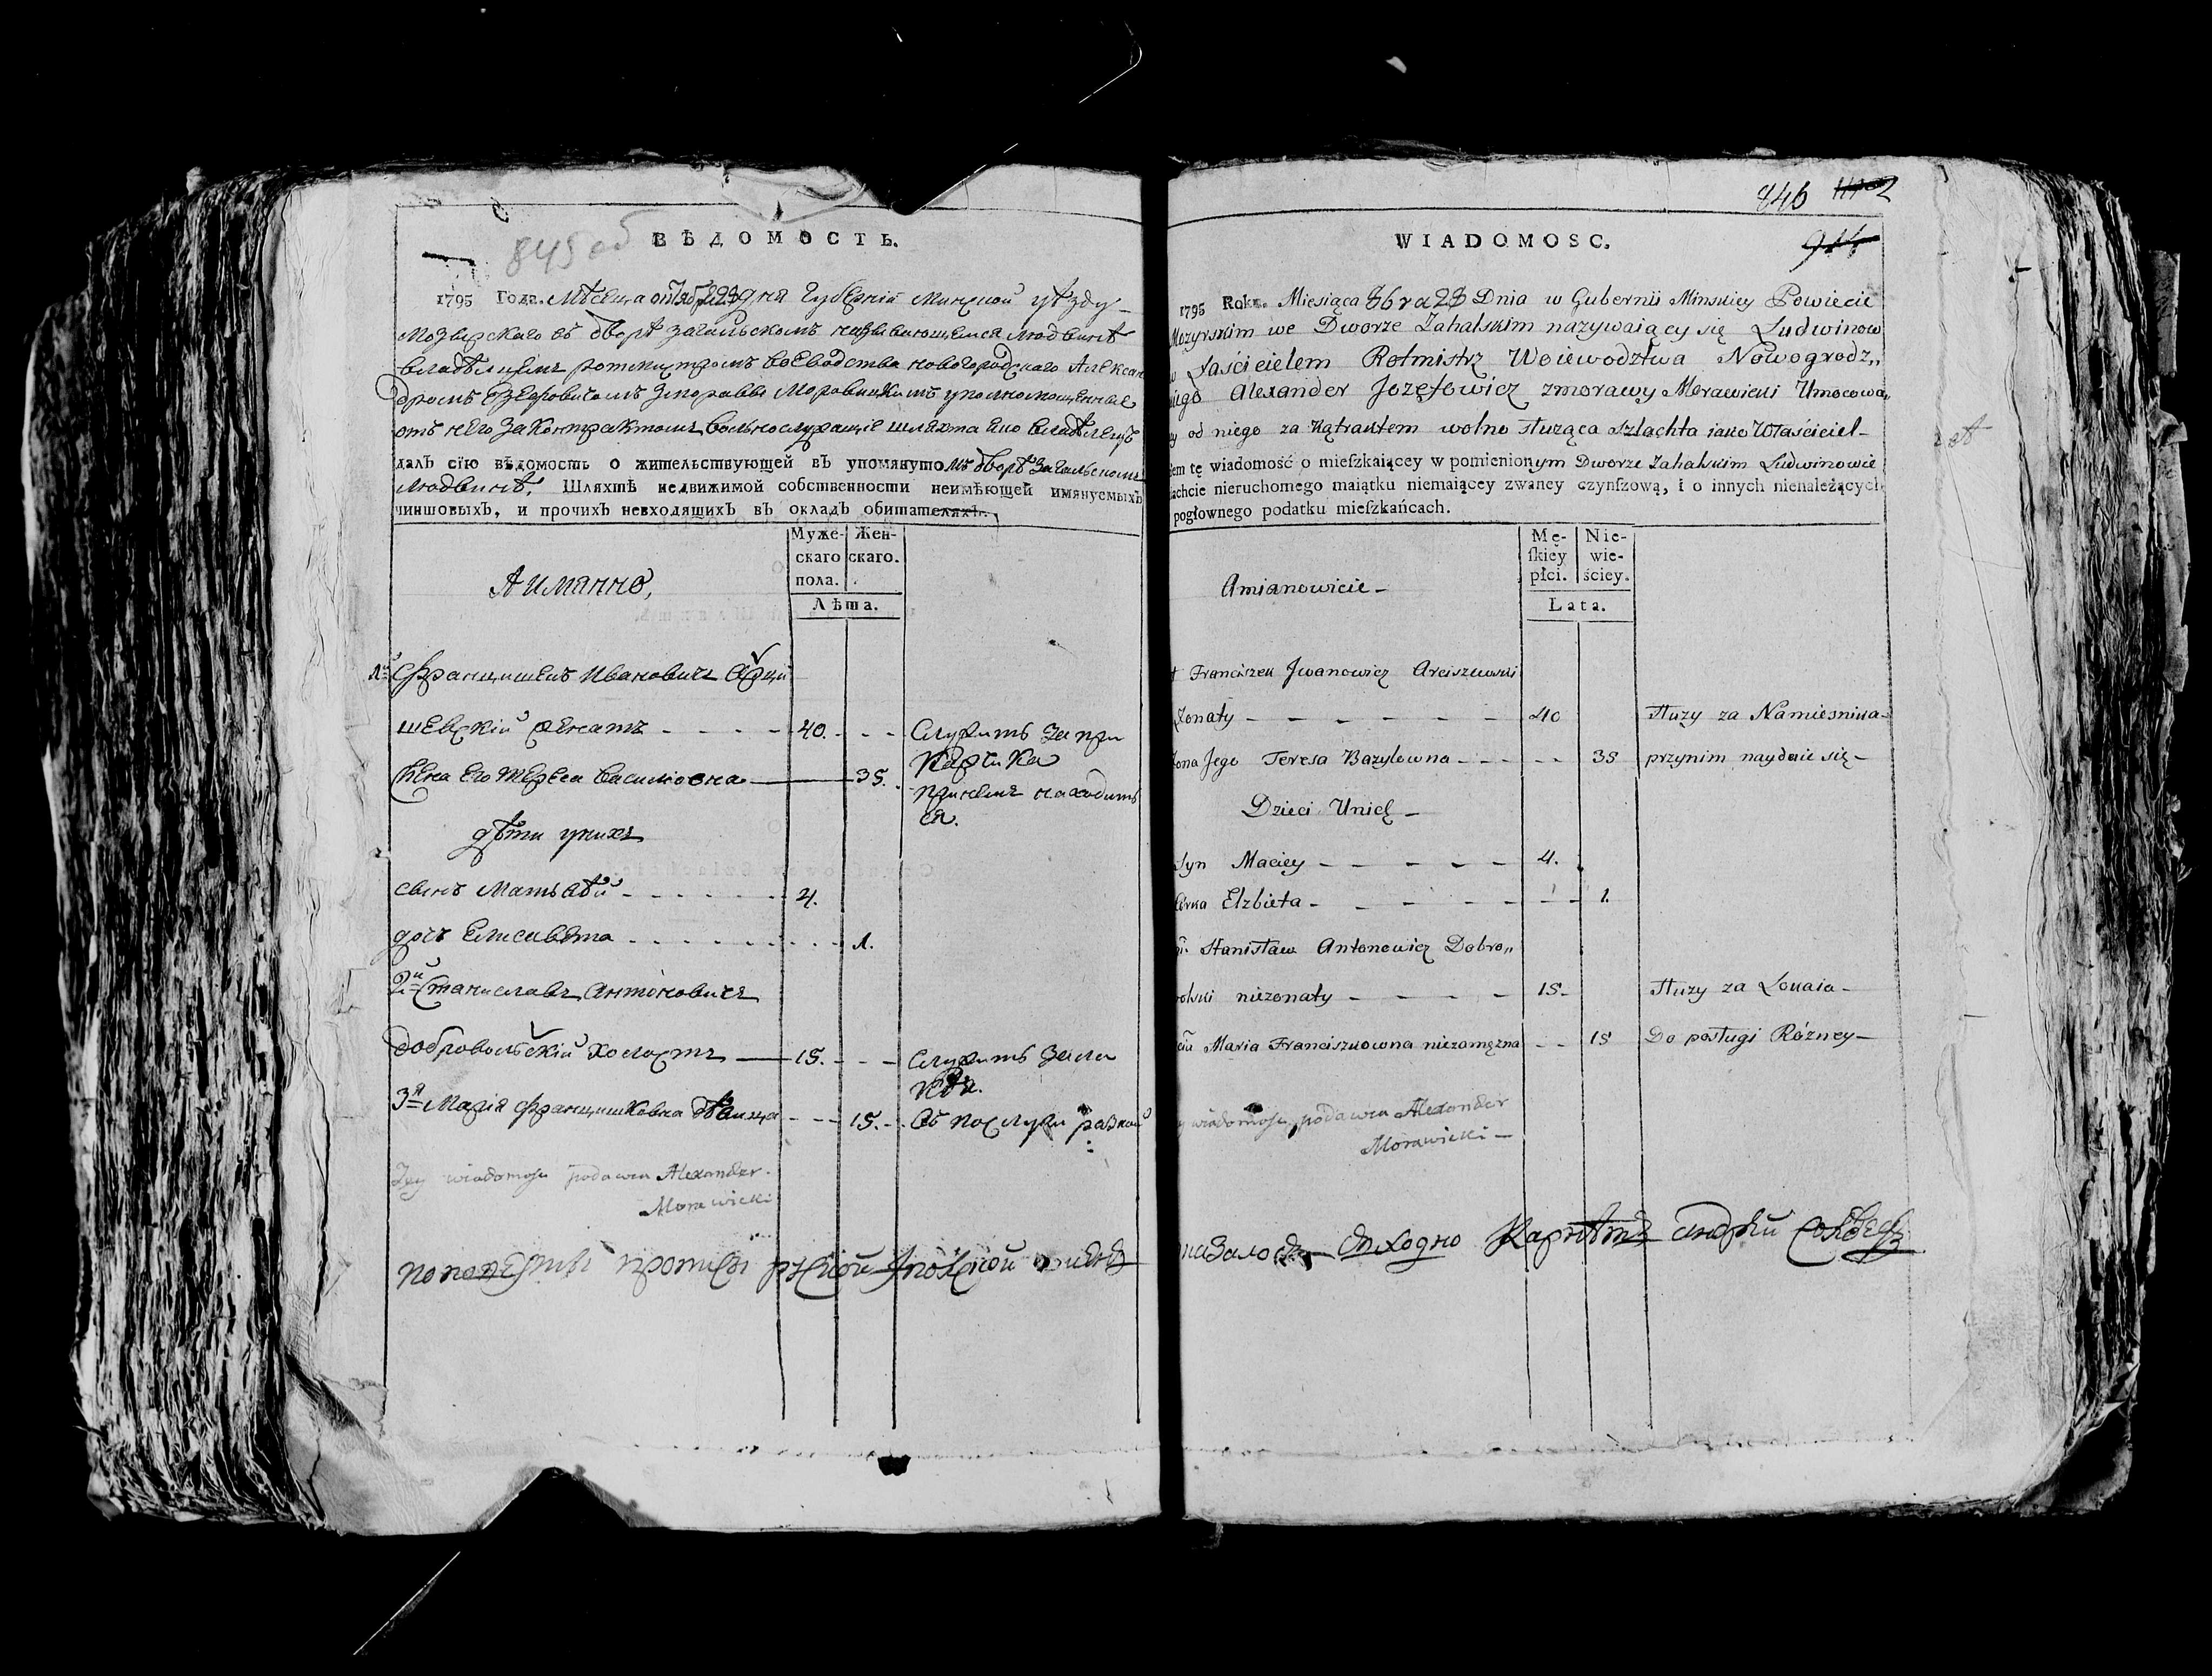 845 об
ВѢДОМОСТЬ.
1795 Года. Мѣсяца октября 23 дня Губерніи Минской уѣзду
Мозырскаго въ дворѣ загальскомъ называющемся Людвинѣ
владѣлцемъ ротмистромъ воеводства новогородскаго Алексан
дромъ Юзефовичомъ Зморавы Моравицкимъ уполномощенные
отъ него за контрактомъ вольнослужащіе шляхта яко владѣлецъ
далъ сїю вѣдомость о жительствующей въ упомянутомъ дворѣ Загальскомъ
Людвинѣ, Шляхтѣ недвижимой собственности неимѣющей имянуемыхъ
чиншовыхъ, и прочихъ невходящихъ въ окладъ обитателяхъ.
Муже- Жен-
скаго скаго.
пола.
Лѣта.
Аимянно,
1й Францишекъ Ивановичъ Арци
шевскій женатъ 40. Служитъ за при
кащика
жена его Тереса Василювна 35. принемъ находитъ
ся.
дѣти унихъ
сынъ Матьвѣй 4.
дочъ Елисавѣта 1.
2й Станиславъ Антоновичъ
Добровольскій холостъ 15. Служитъ за ло
кая.
3я Марія Францишковна дѣвица 15. Въ послуги разной
Tey wiadomosc podawca Alexander
Morawicki
846
914
WIADOMOSC.
1795 Roku. Miesiąca 8bra 23 Dnia w Gubernii Minskiey Powiecie
Mozyrskim we Dworze Zahalskim nazywaiący się Ludwinow
łaścicielem Rotmistrz Woiewodztwa Nowogrodz„
kiego Alexander Jozefowicz zmorawy Morawicki Umocowa„
ny od niego za Kątraktem wolno służąca szlachta iako Właściciel
łem tę wiadomość o mieſzkaiącey w pomienionym Dworze Zahalskim Ludwinowie
lachcie nieruchomego maiątku niemaiącey zwaney czynſzową, i o innych nienależących
pogłownego podatku mieſzkańcach.
Mę- Nie-
ſkiey wie-
płci. ściey.
Lata.
Amianowicie
Franciszek Jwanowicz Arciszewski
Żonaty 40 służy za Namiesnika
żona Jego Teresa Bazylowna 35 przynim nayduie się
Dzieci Unich
Syn Maciey 4.
Corka Elzbieta 1.
Stanisław Antonowicz Dobro„
wolski nieżonaty 15 służy za Lokaia
Maria Franciszkowna niezamężna 15 Do posługi Rózney
wiadomosc podawca Alexander
Morawicki
по поверкѣ противъ руской споской оныя показалось сходно Карнетъ Андрей Соловей